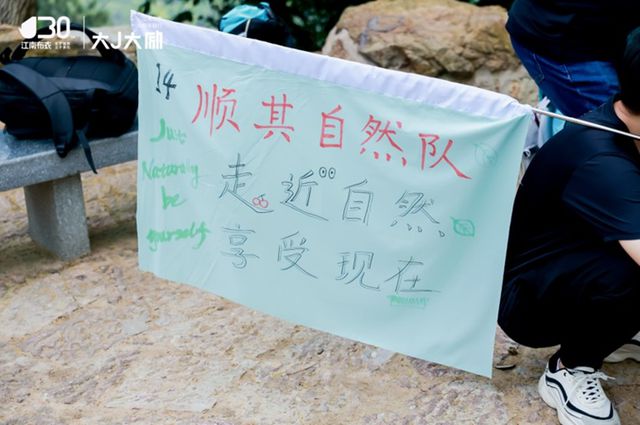 30
江南布衣
大J大励
14
顺其自然队
走近自然
享受现在
Just
Naturally
be
yourself